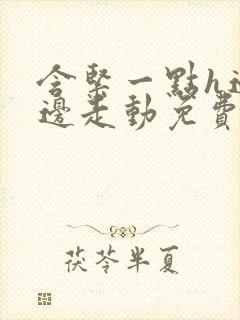 含緊一點h邊
邊走動免費
茯苓半夏